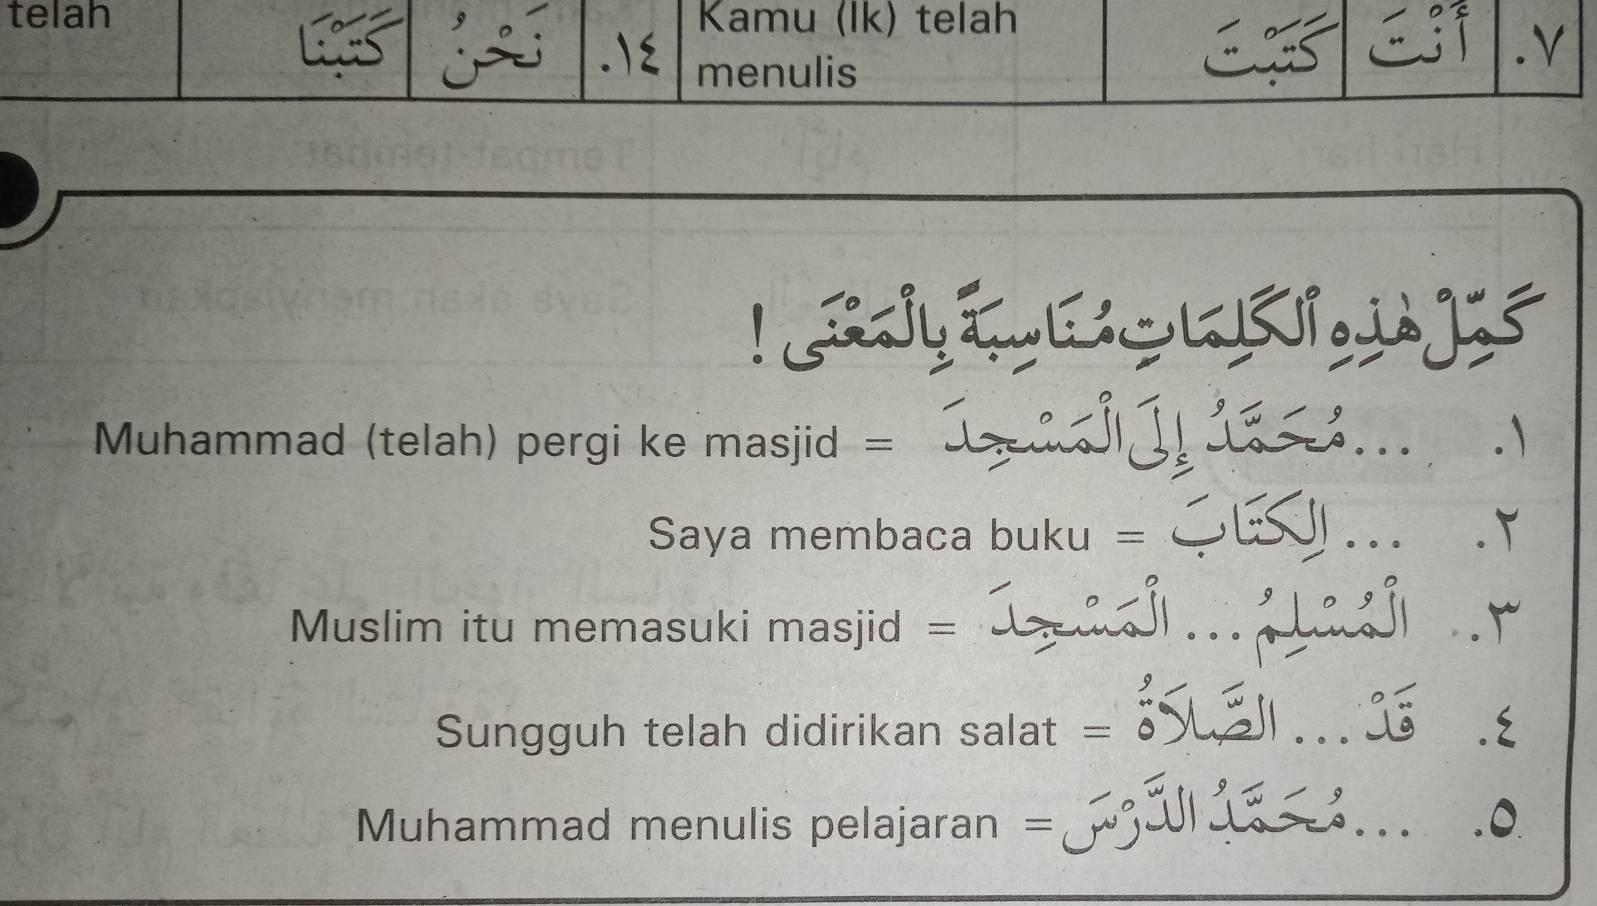 telah
كَتَبْنَا نَحْنُ ١٤. Kamu (lk) telah menulis كَتَبْتَ أَنْتَ ٧.
كَمِّلْ هٰذِهِ الْكَلِمَاتِ مُنَاسِبَةً بِالْمَعْنَى !
١. ...مُحَمَّدُ إِلَى الْمَسْجِدَ = Muhammad (telah) pergi ke masjid
٢. ... الِكَتَابَ = Saya membaca buku
٣. الْمُسْلِمُ ... الْمَسْجِدَ = Muslim itu memasuki masjid
٤. قَدْ ... الصَّلَاةُ = Sungguh telah didirikan salat
٥. ...مُحَمَّدُ الدَّرْسَ = Muhammad menulis pelajaran